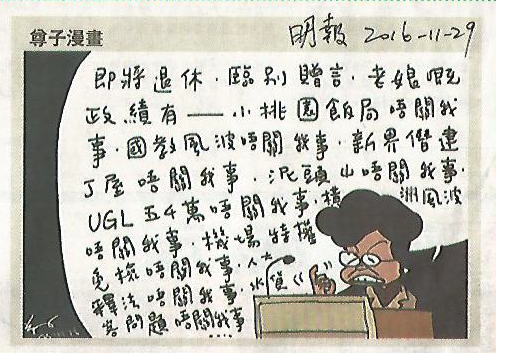 尊子漫畫
明報 2016-11-29
即將退休．臨別贈言．老娘嘅
政績有——小桃園飯局唔關我
事．國教風波唔關我事．新界僭建
丁屋唔關我事．泥頭山唔關我事．
UGL五千萬唔關我事．橫洲風波
唔關我事．機場特權
免檢唔關我事．人大
釋法唔關我事．水貨
客問題唔關我事
……